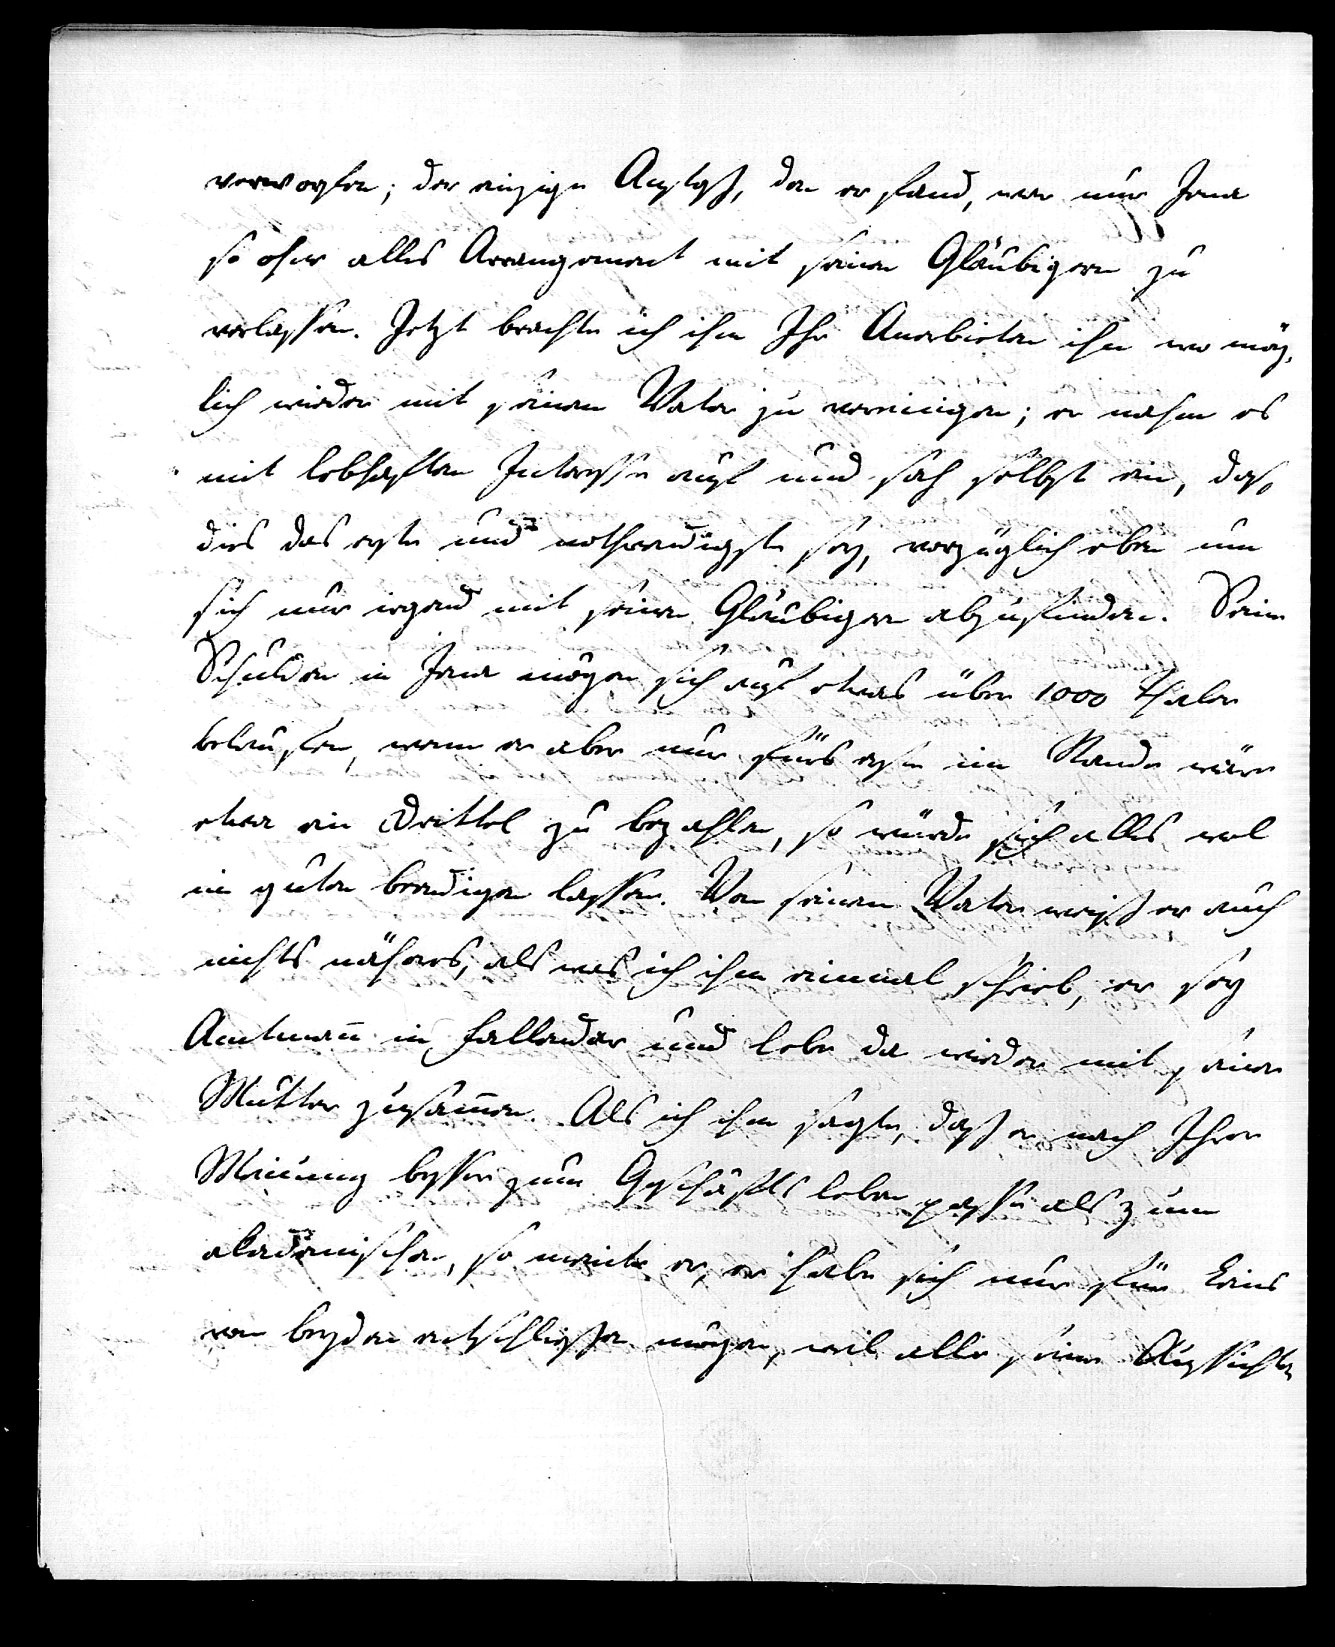 verworfen; der einzige Ausweg, den er fand, war nur Jena
so ohne alles Arrangement mit seinen Gläubigern zu
verlassen. Jetzt brachte ich ihm Ihr Anerbieten ihn wo mög-
lich wieder mit seinem Vater zu vereinigen; er nahm es
mit lebhaftem Interesse auf und sah selbst ein, daß
dies das erste und nothwendigste sey, vorzüglich eben um
sich nur irgend mit seinen Gläubigern abzufinden. Seine
Schulden in Jena mögen sich auf etwas über 1000 Thaler
belaufen, wenn er aber nur fürs erste im Stande wäre
etwa ein Drittel zu bezahlen, so würde sich alles wol
in guten beendigen lassen. Von seinem Vater weiß er auch
nichts näheres, als was ich ihm einmal schrieb, er sey
Amtman̄ in Fallendar und lebe da wieder mit seiner
Mutter zusam̄en. Als ich ihm sagte, daß er nach Ihrer
Meinung besser zum Geschäftsleben passe als zum
akademischen, so meinte er, er habe sich nur für keins
von beyden entschließen mögen, weil alle seine Aussichten